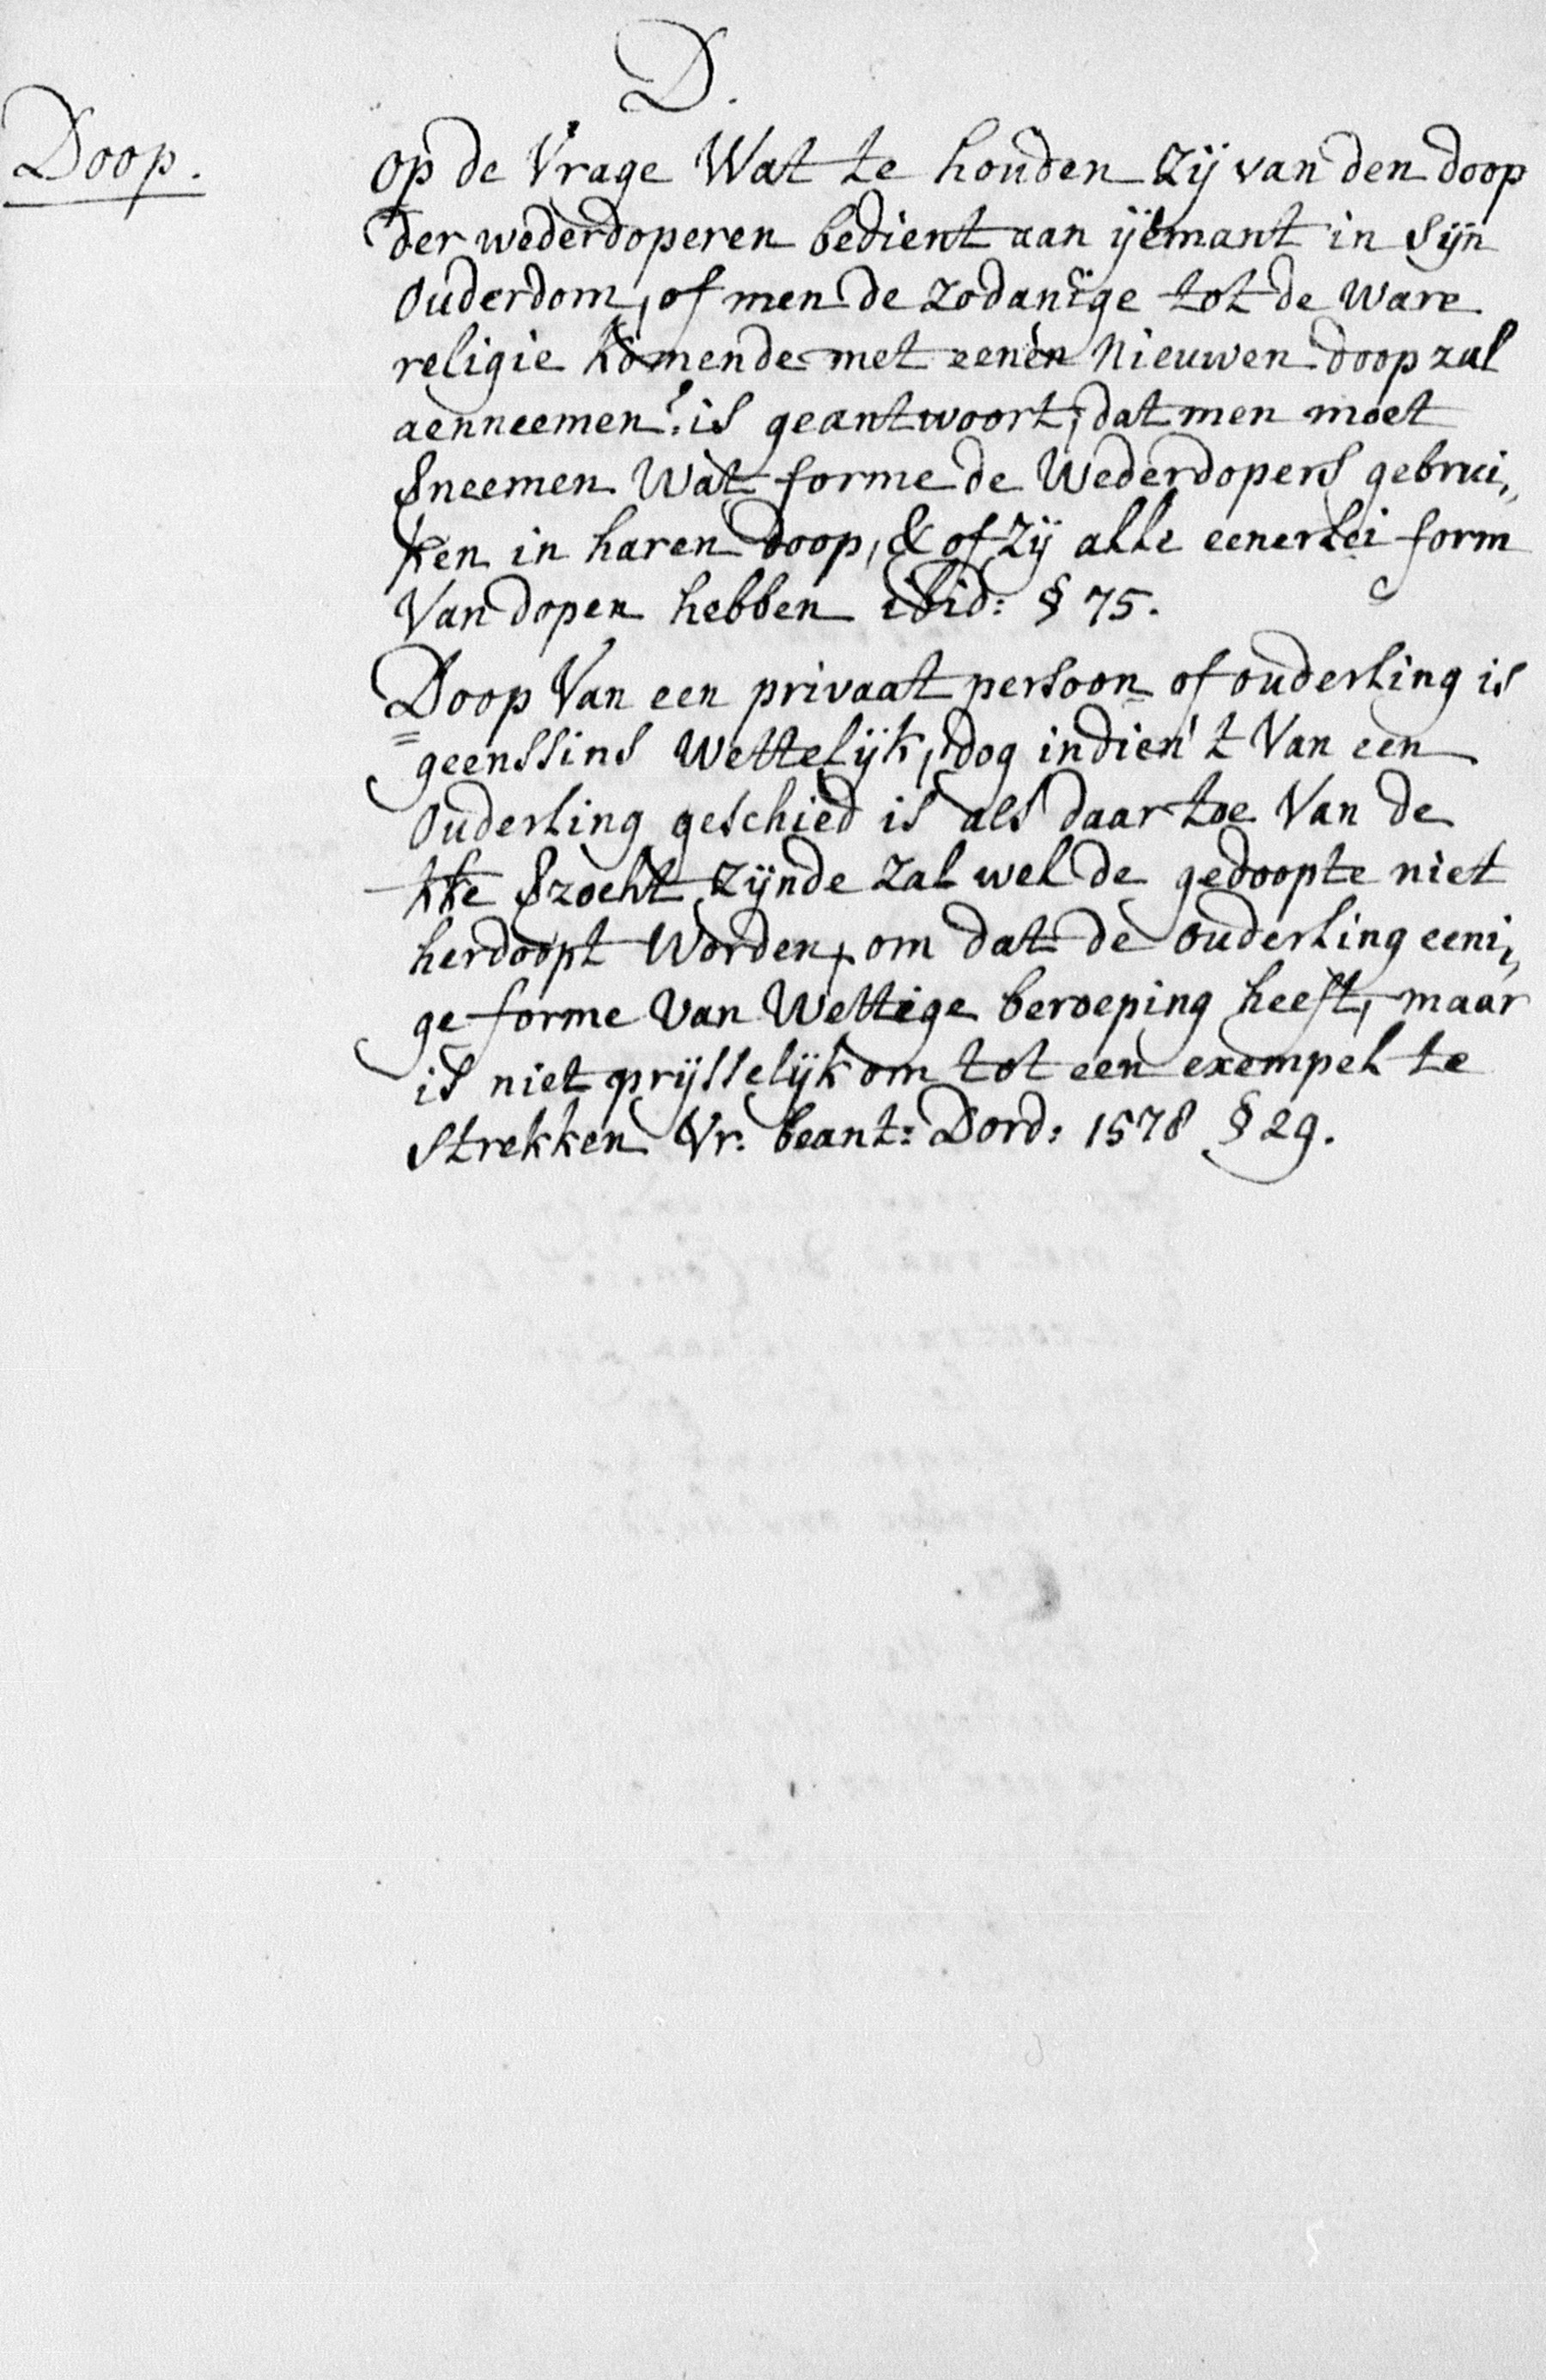 D.
Doop.
op de Vrage Wat te houden zÿ van den doop
der wederdoperen bedient aan ÿemant in sÿn
ouderdom, of men de zodanige tot de Ware
religie komende met eenen Nieuwen doop zal
aenneemen? is geantwoort, dat men moet
&neemen Wat forme de Wederdopers gebrui„
ken in haren doop, & of Zÿ alle eenerlei form
Van dopen hebben ibid: § 75.
Doop Van een privaat persoon of ouderling is
geenssins Wettelÿk, dog indien 't Van een
Ouderling geschied is als daar toe Van de
kke &zocht zÿnde zal wel de gedoopte niet
herdoopt Worden, om dat de ouderling eeni„
ge forme Van Wettige beroeping heeft, maar
is niet prÿsselÿk om tot een exempel te
strekken Vr: beant: Dord: 1578 § 29.